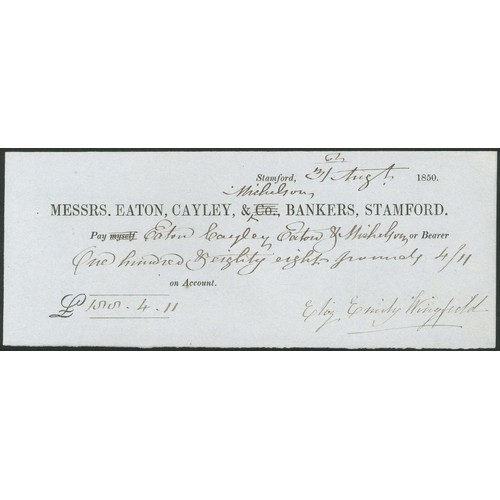 Stamford, 31 Augt. 1850.
Michelson
MESSRS. EATON, CAYLEY, & Co., BANKERS, STAMFORD.
Pay myself Eaton Cayley Eaton & Michelson or Bearer
One hundred & eighty eight pounds 4/11
on Account.
£188 - 4 - 11
Emily Wingfield